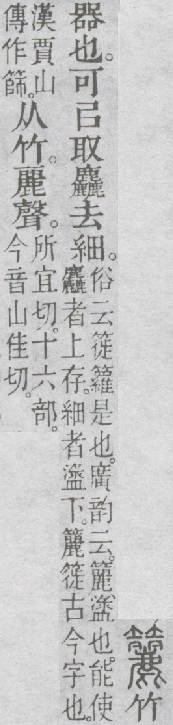 籭竹
器也。可㠯取麤去細。俗云簁籮是也。廣韵云。籭、盪也。能使麤者上存。細者盪下。籭簁古今字也。
漢賈山傳作篩。从竹。麗聲。所宜切。十六部。今音山佳切。